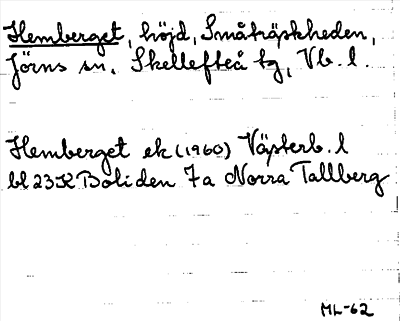 Hemberget, höjd, Småträskheden,
Jörns sn, Skellefteå tg, Vb. l.
Hemberget ek (1960) Västerb. l
bl 23K Boliden 7a Norra Tallberg
ML-62